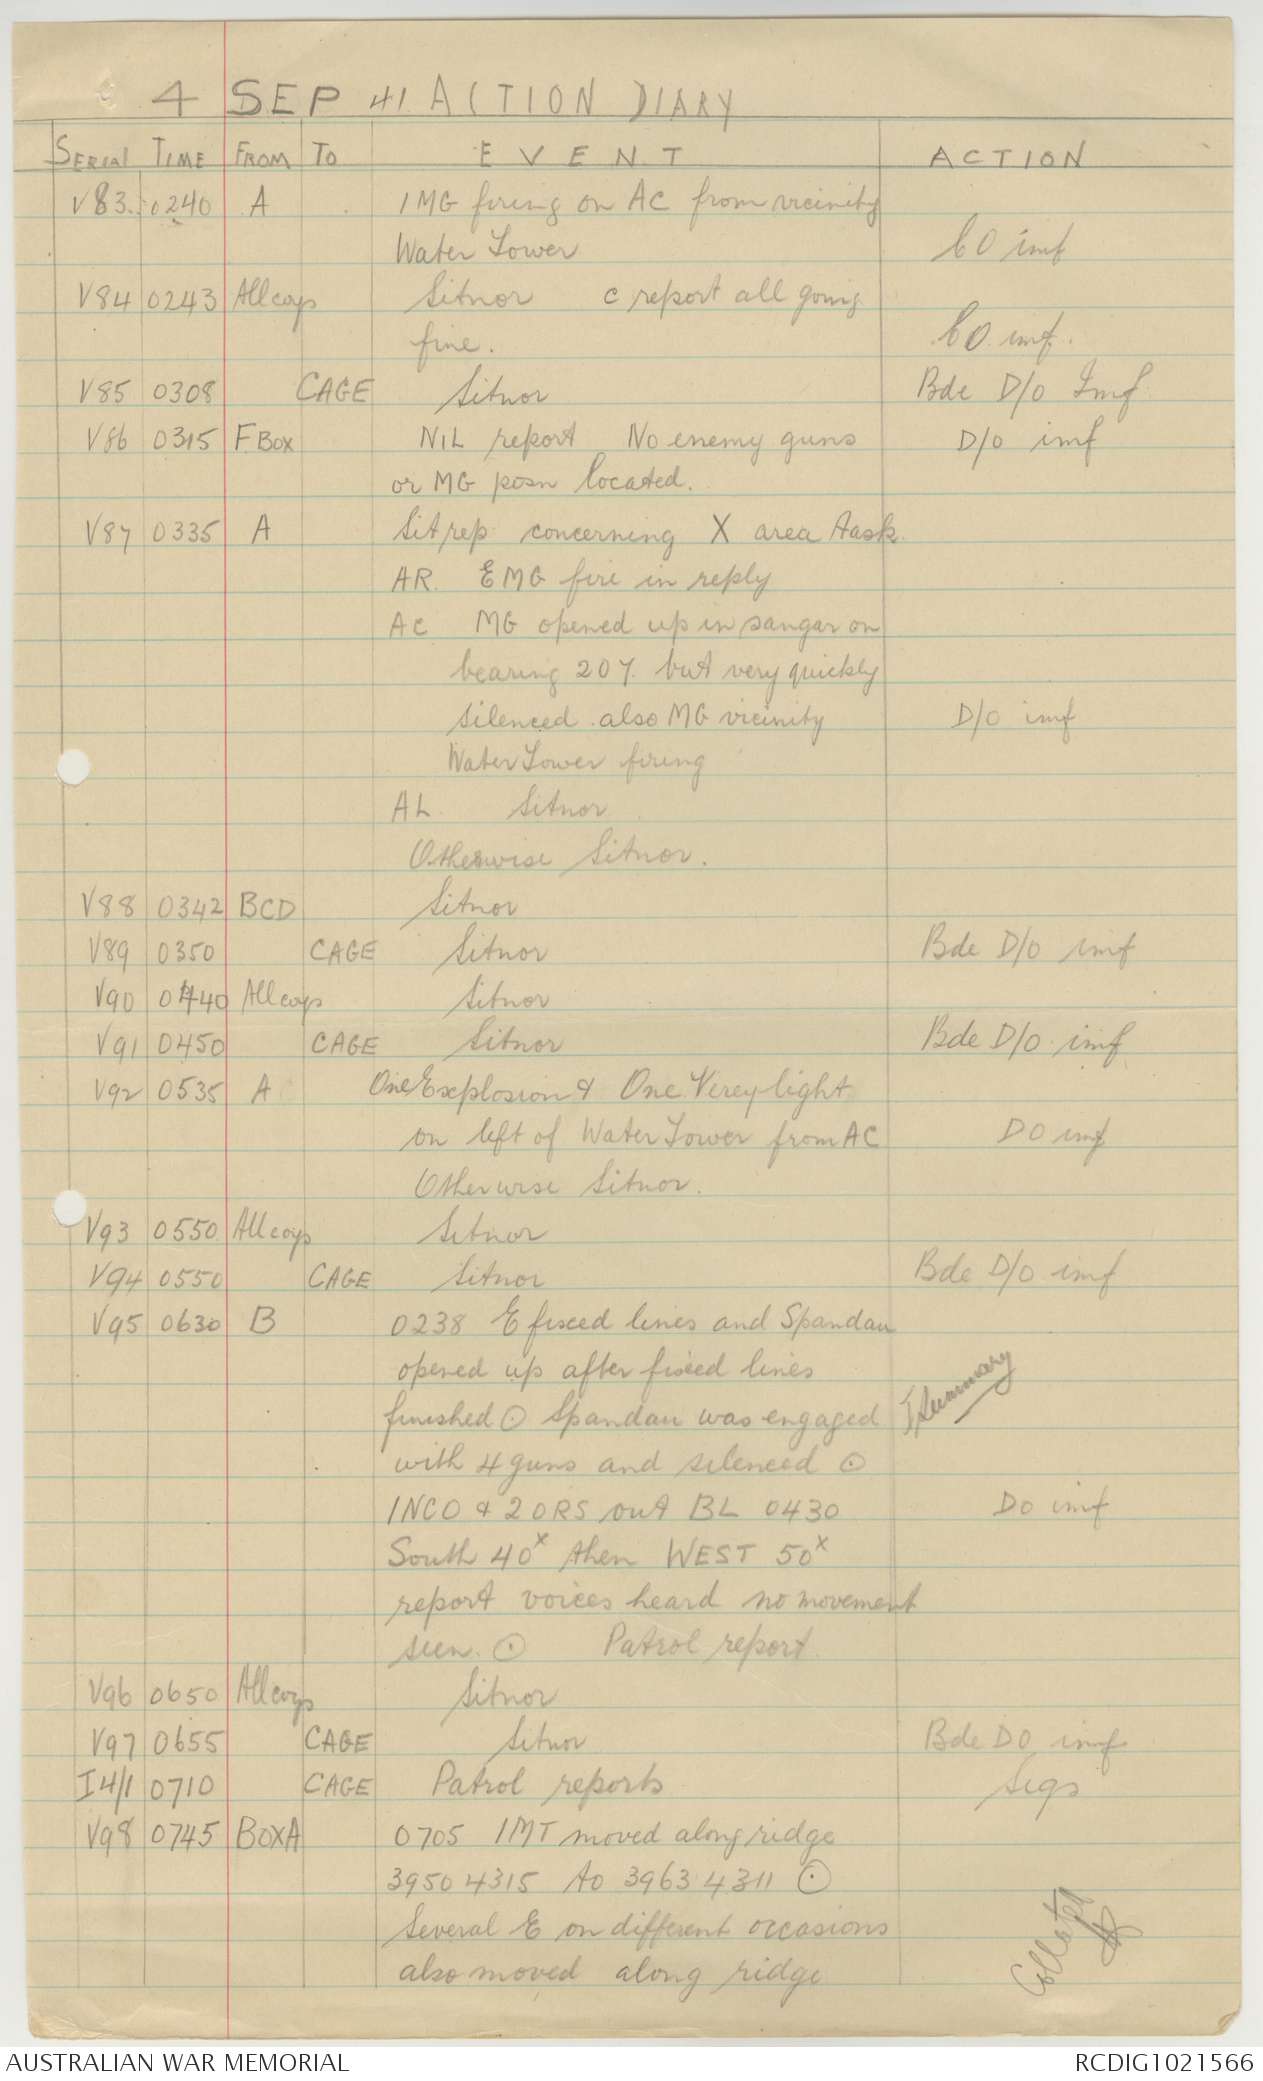 4 SEP 41 ACTION DIARY
SERIAL TIME FROM TO EVENT ACTION
V83 0240 A 1 MG firing on AC from vicinity
Water Tower CO inf
V84 0243 All coys Sitnor C report all going
fine. CO inf.
V85 0308 CAGE Sitnor Bde D/O Inf
V86 0315 F Box NIL report No enemy guns D/O inf
or MG posn located.
V87 0335 A Sitrep concerning X area task.
AR. EMG fire in reply
AC MG opened up in sangar on
bearing 207. but very quickly
silenced. also MG vicinity D/O inf
Water Tower firing
AL. Sitnor
Otherwise Sitnor.
V88 0342 BCD Sitnor
V89 0350 CAGE Sitnor Bde D/O inf
V90 0440 All coys Sitnor
V91 0450 CAGE Sitnor Bde D/O inf
V92 0535 A One Explosion & One Verey light
on left of Water Tower from AC DO inf
Otherwise Sitnor.
V93 0550 All coys Sitnor
V94 0550 CAGE Sitnor Bde D/O inf
V95 0630 B 0238 E fixed lines and Spandau
opened up after fixed lines
finished ⊙ Spandau was engaged Summary
with 4 guns and silenced ⊙
1 NCO & 2 ORS out BL 0430 DO inf
South 40x then WEST 50x
report voices heard no movement
seen. ⊙ Patrol report.
V96 0650 All coys Sitnor
V97 0655 CAGE Sitnor Bde DO inf
I4/1 0710 CAGE Patrol reports Sigs
V98 0745 BOXA 0705 1MT moved along ridge
3950 4315 to 3963 4311 ⊙
Several E on different occasions
also moved along ridge
Collated
AUSTRALIAN WAR MEMORIAL RCDIG1021566